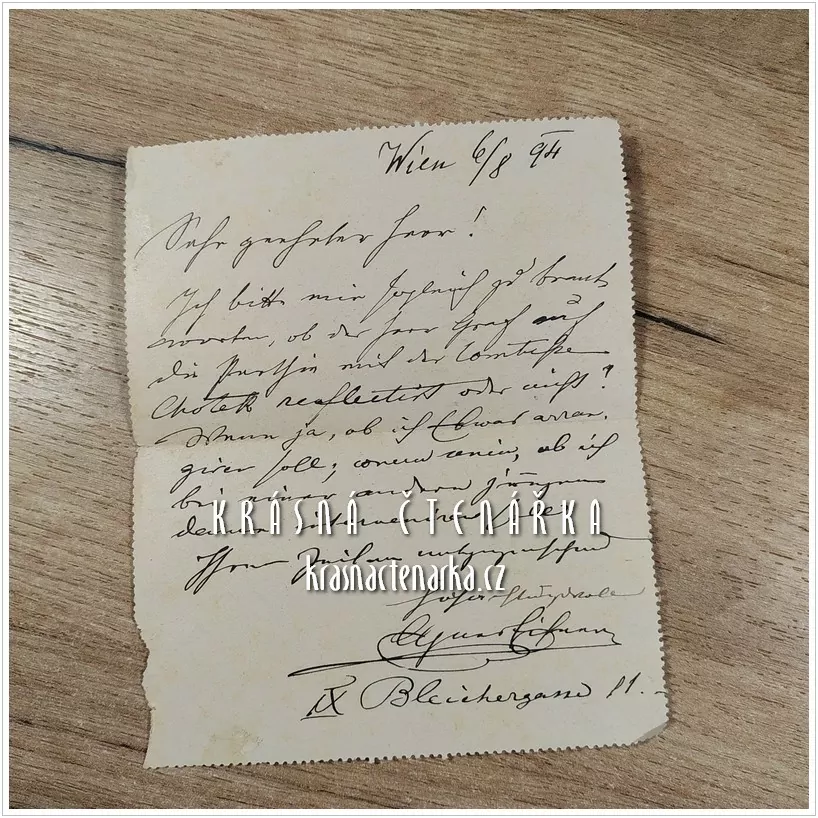 Wien 6/8 94
Sehr geehrter Herr!
Ich bitte mir sogleich zu beant
worten, ob der Herr Graf auf
die Parthie mit der Comtesse
Chotek reflectirt oder nicht?
Wenn ja, ob ich Etwas arran-
giren soll; wenn nein, ob ich
bei einer andern jüngern
KRÁSNÁ ČTENÁŘKA
Dame interveniren soll.
Ihren Zeilen entgegensehend
krasnactenarka.cz
IX Bleichergasse 11.